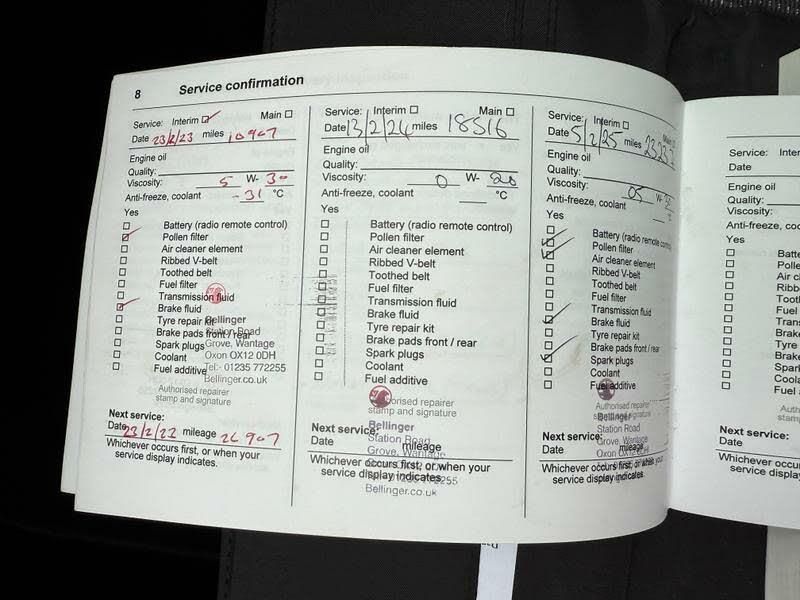 8 Service confirmation
Service: Interim Main
Date 23/2/23 miles 10907
Engine oil
Quality:
Viscosity: 5 W- 30
Anti-freeze, coolant -31 °C
Yes
Battery (radio remote control)
Pollen filter
Air cleaner element
Ribbed V-belt
Toothed belt
Fuel filter
Transmission fluid
Brake fluid
Tyre repair kit
Brake pads front / rear
Spark plugs
Coolant
Fuel additive
Bellinger
Station Road
Grove, Wantage
Oxon OX12 0DH
Tel:- 01235 772255
Bellinger.co.uk
Authorised repairer
stamp and signature
Next service:
Date 23/2/23 mileage 26907
Whichever occurs first, or when your
service display indicates.
Service: Interim Main
Date 13/2/24 miles 18516
Engine oil
Quality:
Viscosity: 0 W- 20
Anti-freeze, coolant °C
Yes
Battery (radio remote control)
Pollen filter
Air cleaner element
Ribbed V-belt
Toothed belt
Fuel filter
Transmission fluid
Brake fluid
Tyre repair kit
Brake pads front / rear
Spark plugs
Coolant
Fuel additive
Authorised repairer
stamp and signature
Bellinger
Station Road
Grove, Wantage
Bellinger.co.uk
Next service:
Date mileage
Whichever occurs first, or when your
service display indicates.
Service: Interim Main
Date 5/2/25 miles
Engine oil
Quality:
Viscosity: 05 W-
Anti-freeze, coolant °C
Yes
Battery (radio remote control)
Pollen filter
Air cleaner element
Ribbed V-belt
Toothed belt
Fuel filter
Transmission fluid
Brake fluid
Tyre repair kit
Brake pads front / rear
Spark plugs
Coolant
Fuel additive
Authorised repairer
stamp and signature
Bellinger
Station Road
Grove, Wantage
Oxon OX12 0DH
Next service:
Date mileage
Whichever occurs first, or when your
service display indicates.
Service:
Date
Engine oil
Quality:
Viscosity:
Anti-freeze,
Yes
Next service:
Date
Whichever
service